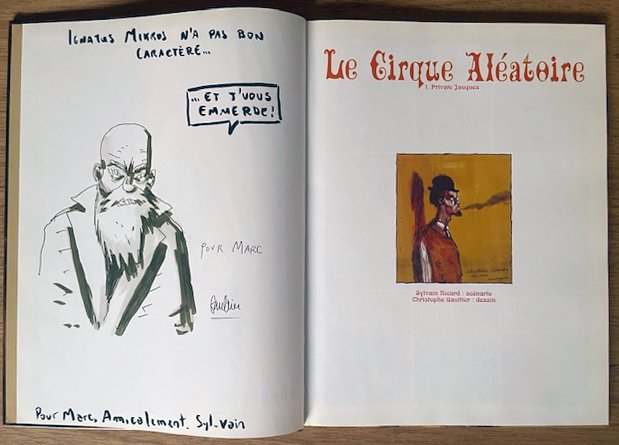 IGNATUS MIKROS N'A PAS BON
CARACTÈRE...
... ET J'VOUS
EMMERDE!
POUR MARC
Gaultier
Pour Marc, Amicalement. Syl-vain
Le Cirque Aléatoire
1. Private Jauques
Sylvain Ricard : scénario
Christophe Gaultier : dessin